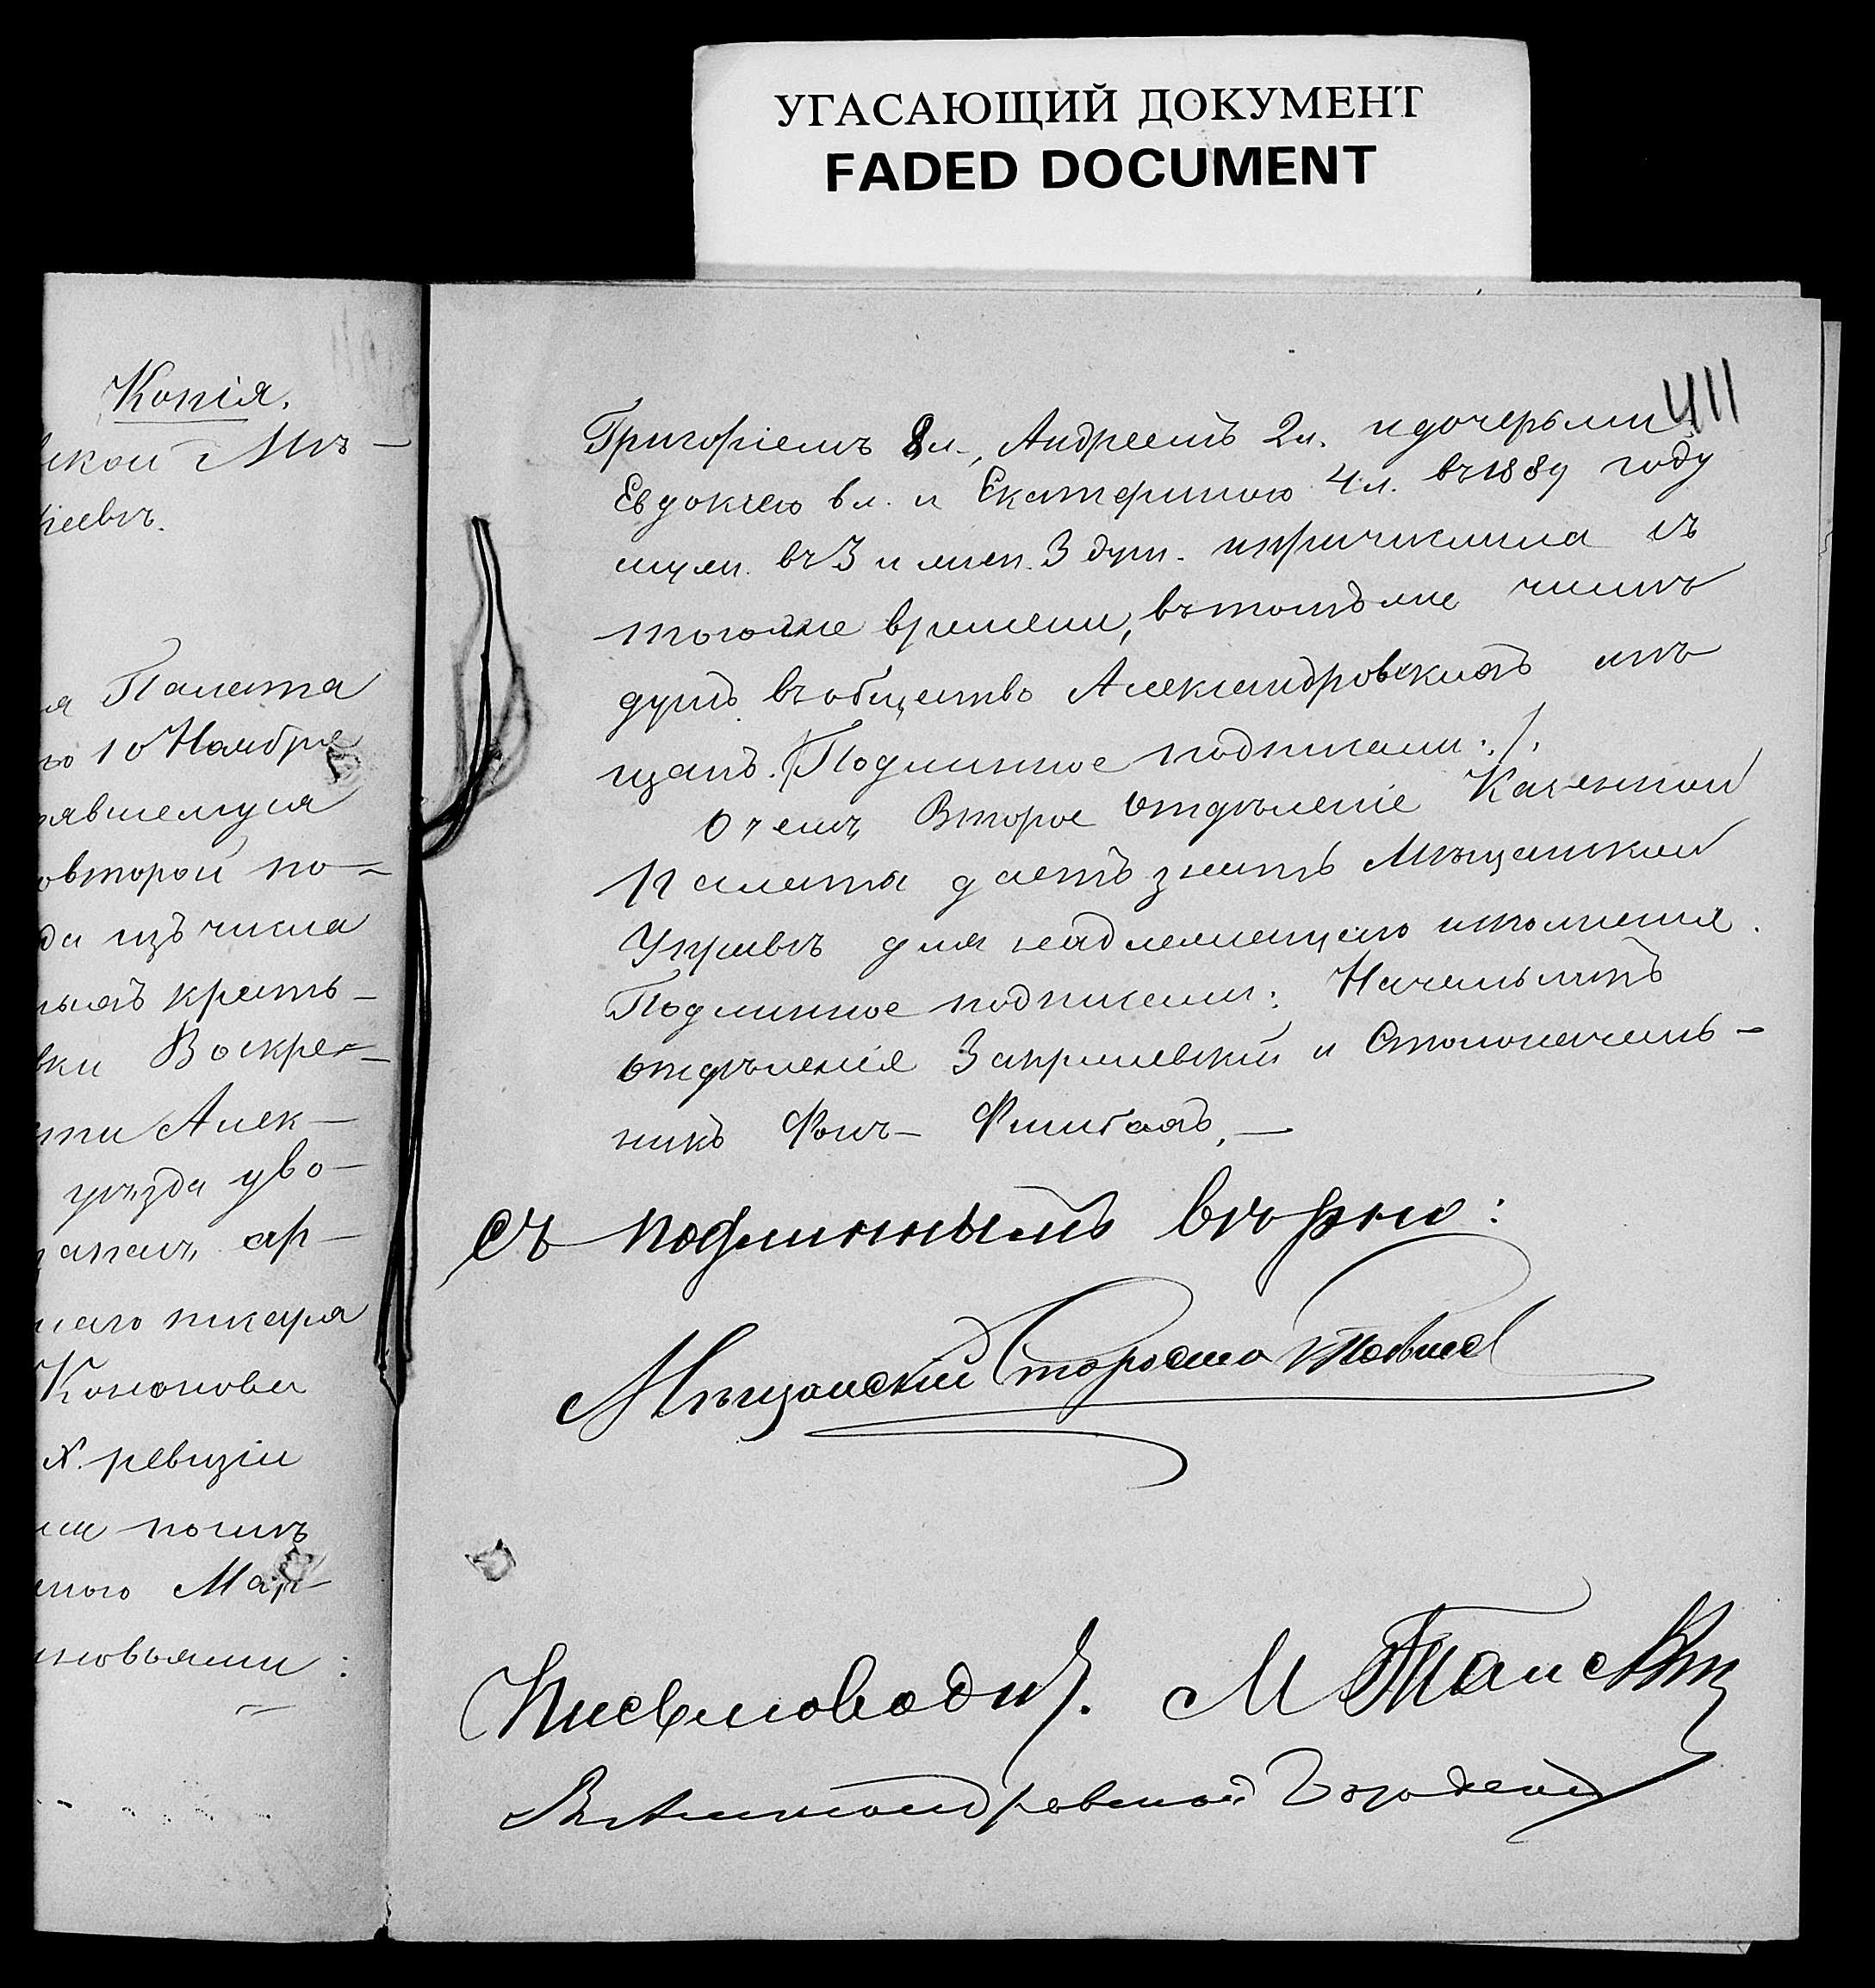 УГАСАЮЩИЙ ДОКУМЕНТ
FADED DOCUMENT
Копія.
ской Мѣ-
ѣевъ.
я Палата
10 Ноября
явшемуся
второй по-
да изъ числа
ныхъ кресть-
вки Воскре-
сти Алек-
уѣзда уво-
ар-
наго писаря
Кононова
X. ревизіи
ли
ною Мар-
ыновьями:
411
Григоріемъ 8 л., Андреемъ 2 л. и дочерьми
Евдокіею 6 л. и Екатериною 4 л. въ 1889 году
муж. въ 3 и жен. 3 душ. и причислила съ
того же времени, въ томъ же числѣ
душъ въ общество Александровскихъ мѣ-
щанъ. (Подлинное подписали:).
О чемъ Второе Отдѣленіе Казенной
Палаты даетъ знать Мѣщанской
Управѣ для надлежащаго исполненія.
Подлинное подписали: Начальникъ
Отдѣленія и Столоначаль-
никъ Фонъ-
Съ подлиннымъ вѣрно:
Мѣщанскій Староста
Письмоводит. М
Александровской Городской